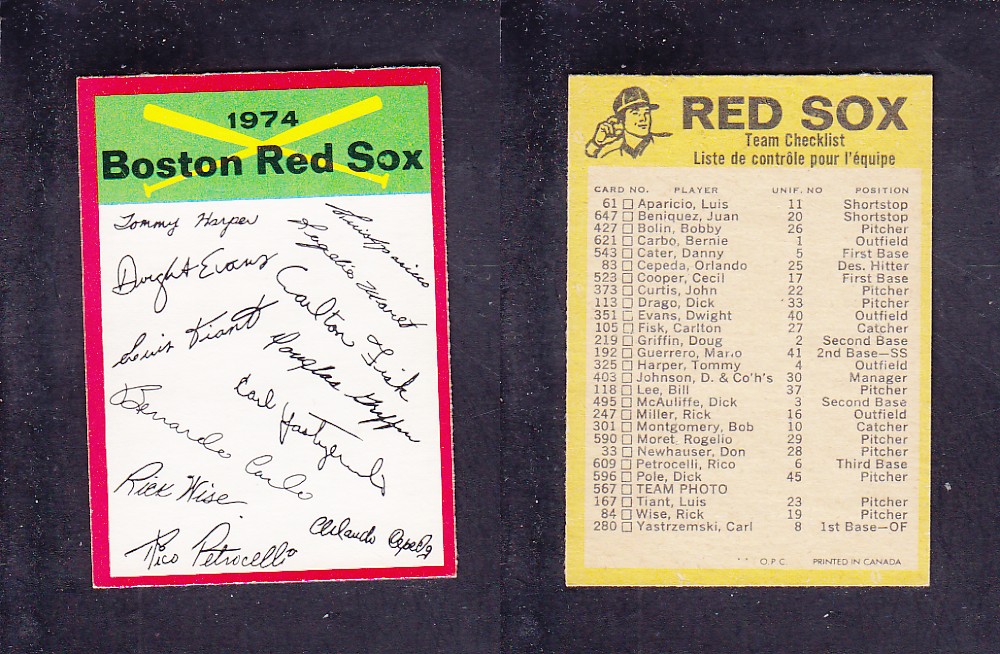 1974
Boston Red Sox
Tommy Harper
Luis Aparicio
Rogelio Moret
Dwight Evans
Carlton Fisk
Luis Tiant
Douglas Griffin
Carl Yastrzemski
Bernardo Carbo
Rick Wise
Orlando Cepeda
Rico Petrocelli
RED SOX
Team Checklist
Liste de contrôle pour l'équipe
CARD NO. PLAYER UNIF. NO POSITION
61 Aparicio, Luis 11 Shortstop
647 Beniquez, Juan 20 Shortstop
427 Bolin, Bobby 26 Pitcher
621 Carbo, Bernie 1 Outfield
543 Cater, Danny 5 First Base
83 Cepeda, Orlando 25 Des. Hitter
523 Cooper, Cecil 17 First Base
373 Curtis, John 22 Pitcher
113 Drago, Dick 33 Pitcher
351 Evans, Dwight 40 Outfield
105 Fisk, Carlton 27 Catcher
219 Griffin, Doug 2 Second Base
192 Guerrero, Mario 41 2nd Base—SS
325 Harper, Tommy 4 Outfield
403 Johnson, D. & Co'h's 30 Manager
118 Lee, Bill 37 Pitcher
495 McAuliffe, Dick 3 Second Base
247 Miller, Rick 16 Outfield
301 Montgomery, Bob 10 Catcher
590 Moret, Rogelio 29 Pitcher
33 Newhauser, Don 28 Pitcher
609 Petrocelli, Rico 6 Third Base
596 Pole, Dick 45 Pitcher
567 TEAM PHOTO
167 Tiant, Luis 23 Pitcher
84 Wise, Rick 19 Pitcher
280 Yastrzemski, Carl 8 1st Base—OF
O.P.C. PRINTED IN CANADA